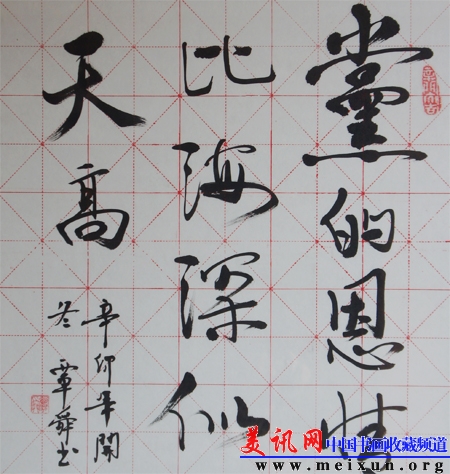 黨的恩情
比海深似
天高
辛卯年開
冬覃舜书
美讯网
中国书画收藏频道
www.meixun.org